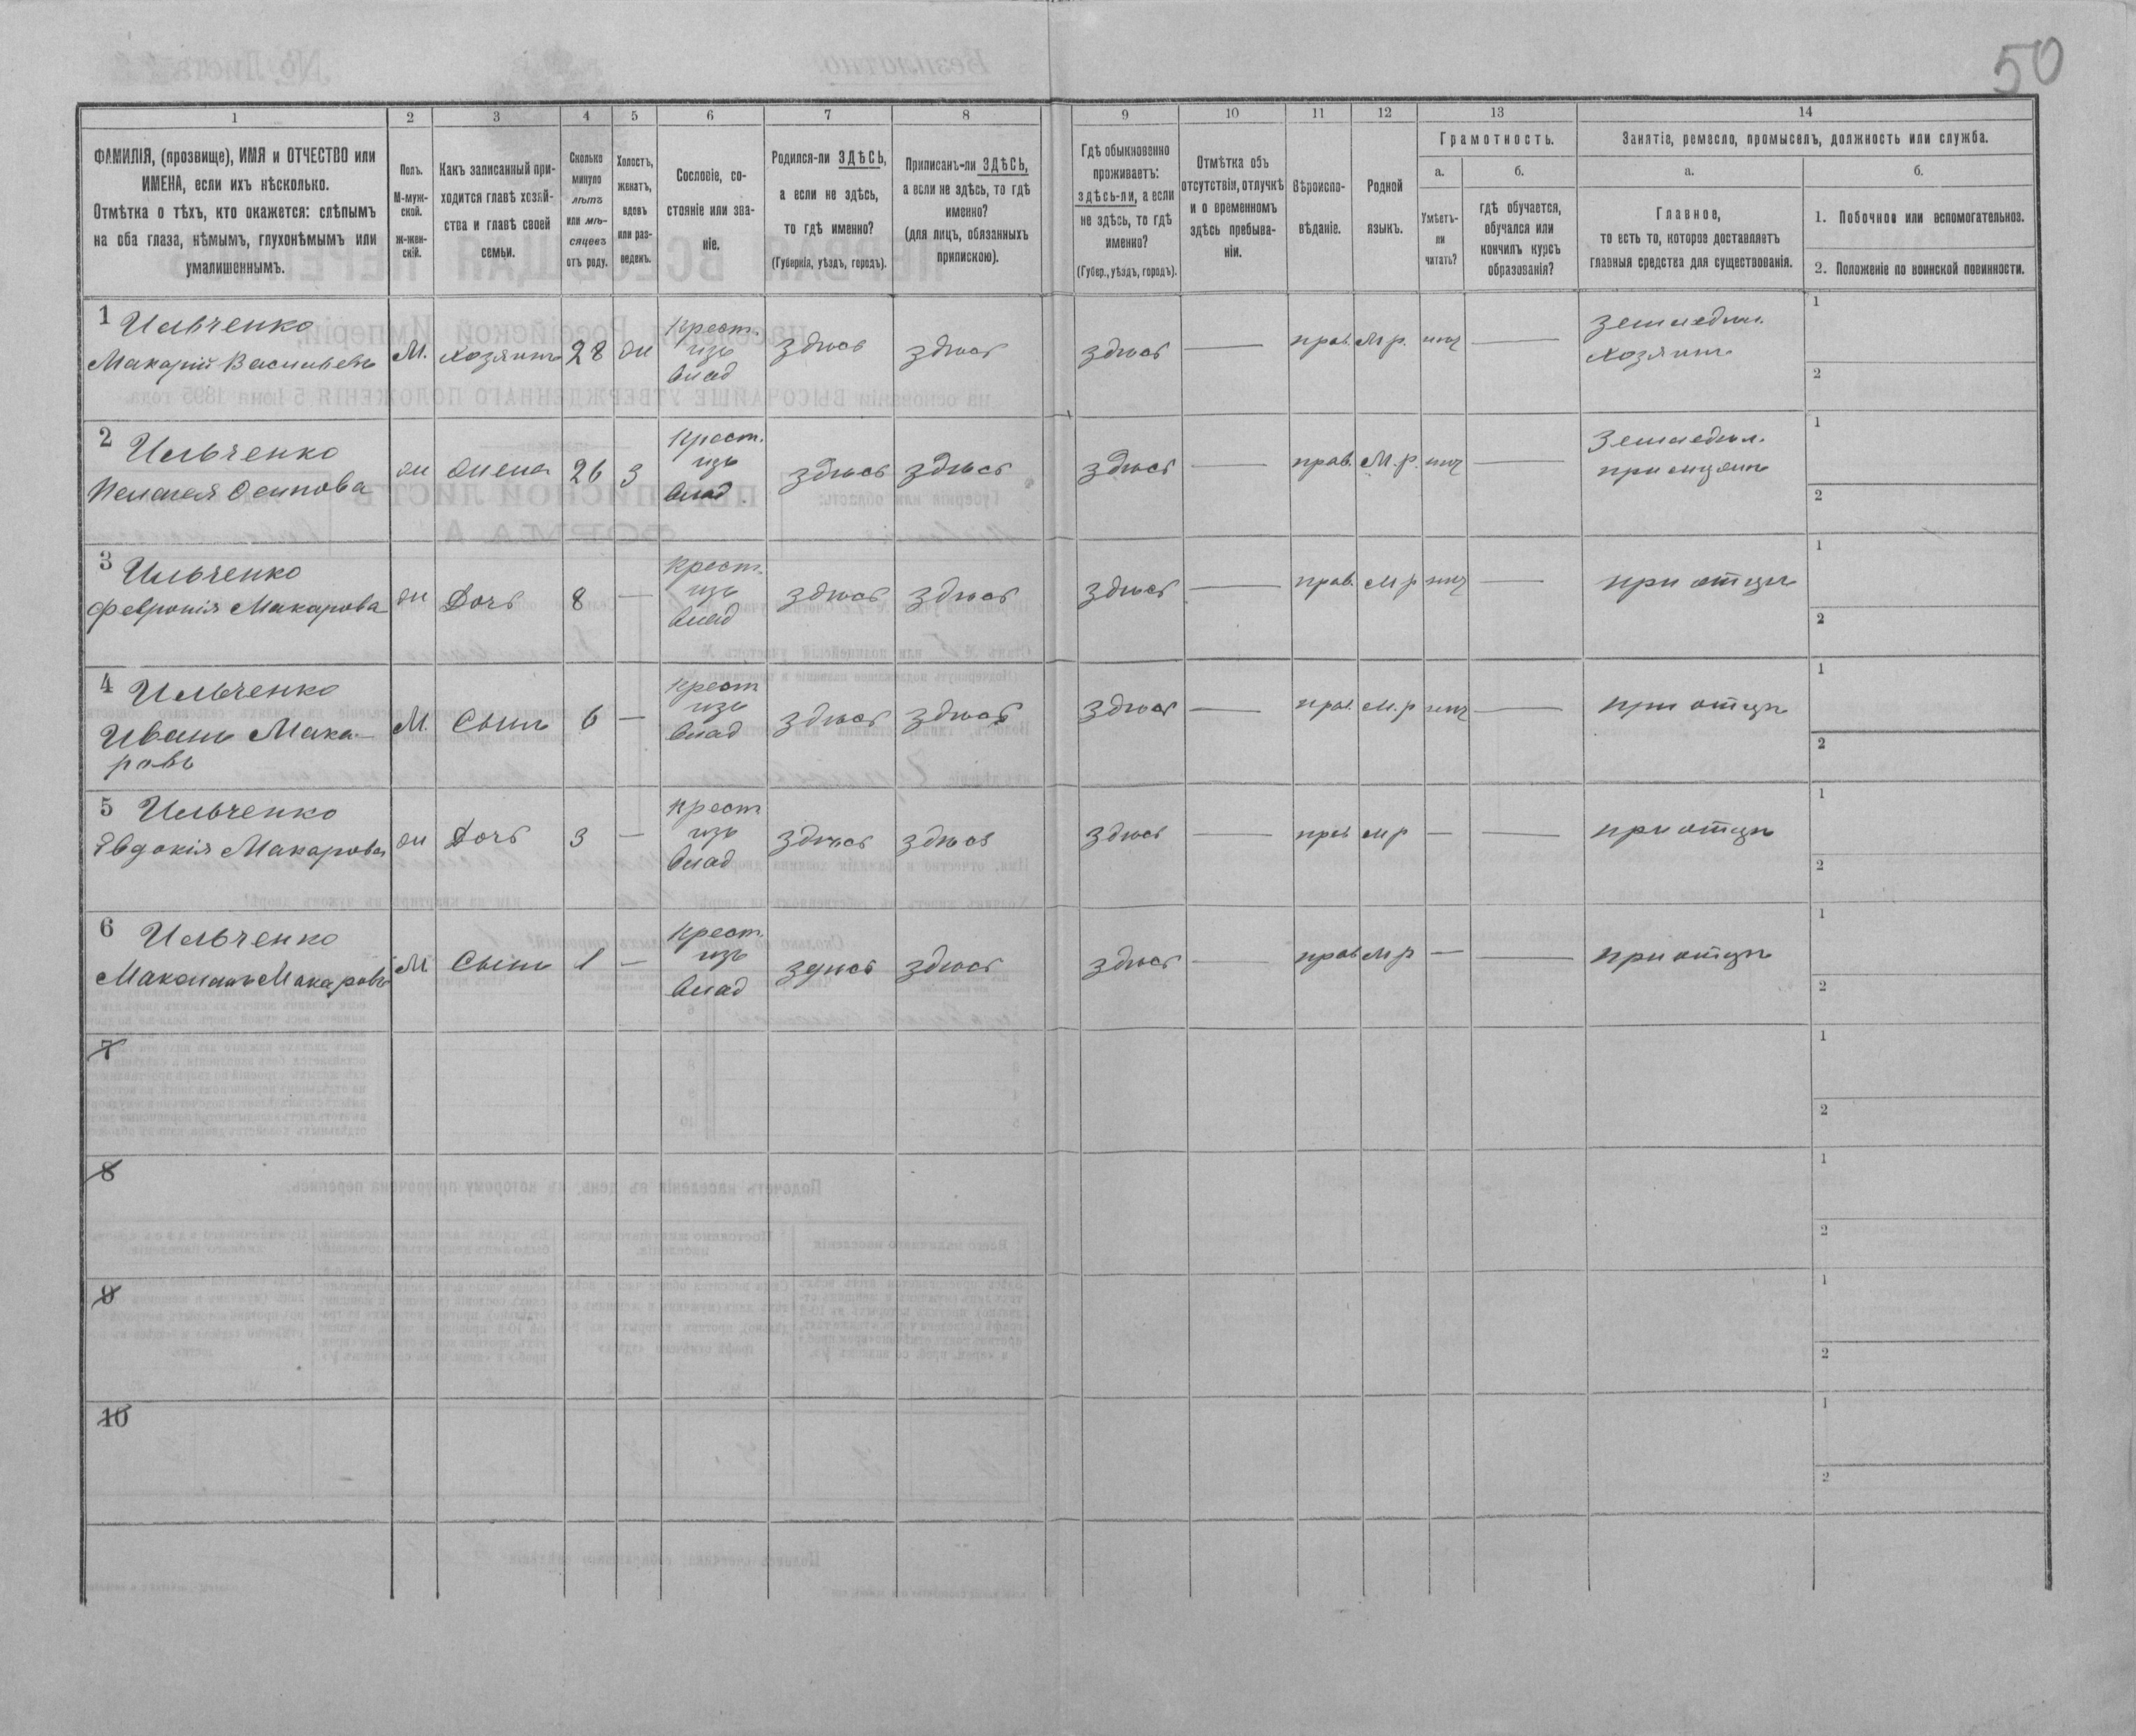 50
1 2 3 4 5 6 7 8 9 10 11 12 13 14
ФАМИЛІЯ, (прозвище), ИМЯ и ОТЧЕСТВО или
ИМЕНА, если ихъ нѣсколько.
Отмѣтка о тѣхъ, кто окажется: слѣпымъ
на оба глаза, нѣмымъ, глухонѣмымъ или
умалишеннымъ.
Полъ.
М-муж-
ской.
ж-жен-
скій.
Какъ записанный при-
ходится главѣ хозяй-
ства и главѣ своей
семьи.
Сколько
минуло
лѣтъ
или мѣ-
сяцевъ
отъ роду.
Холостъ,
женатъ,
вдовъ
или раз-
веденъ.
Сословіе, со-
стояніе или зва-
ніе.
Родился-ли ЗДѢСЬ,
а если не здѣсь,
то гдѣ именно?
(Губернія, уѣздъ, городъ).
Приписанъ-ли ЗДѢСЬ,
а если не здѣсь, то гдѣ
именно?
(для лицъ, обязанныхъ
припискою).
Гдѣ обыкновенно
проживаетъ:
здѣсь-ли, а если
не здѣсь, то гдѣ
именно?
(Губер., уѣздъ, городъ).
Отмѣтка объ
отсутствіи, отлучкѣ
и о временномъ
здѣсь пребыва-
ніи.
Вѣроиспо-
вѣданіе.
Родной
языкъ.
Грамотность.
а.
Умѣетъ-
ли
читать?
б.
гдѣ обучается,
обучался или
кончилъ курсъ
образованія?
Занятіе, ремесло, промыселъ, должность или служба.
а.
Главное,
то есть то, которое доставляетъ
главныя средства для существованія.
б.
1. Побочное или вспомогательное.
2. Положеніе по воинской повинности.
1 Ильченко
Макарій Васильевъ М. хозяинъ 28 ж крест. изъ влад здѣсь здѣсь здѣсь — прав. М р. нѣт — земледѣл. хозяинъ 1 2
2 Ильченко
Пелагея Осипова ж жена 26 з крест. изъ влад здѣсь здѣсь здѣсь — прав. М. р. нѣт — земледѣл. 1 2
3 Ильченко
Февронія Макарова ж Дочь 8 — крест. изъ влад здѣсь здѣсь здѣсь — прав. М р нѣт — при отцѣ 1 2
4 Ильченко
Иванъ Мака-
ровъ М. Сынъ 6 — крест изъ влад здѣсь здѣсь здѣсь — прав. М. р нѣт — при отцѣ 1 2
5 Ильченко
Евдокія Макарова ж Дочь 3 — крест изъ влад здѣсь здѣсь здѣсь — прав М р — — при отцѣ 1 2
6 Ильченко
Макаровъ М Сынъ 1 — крест. изъ влад здѣсь здѣсь здѣсь — прав М р — — при отцѣ 1 2
7 1 2
8 1 2
9 1 2
10 1 2